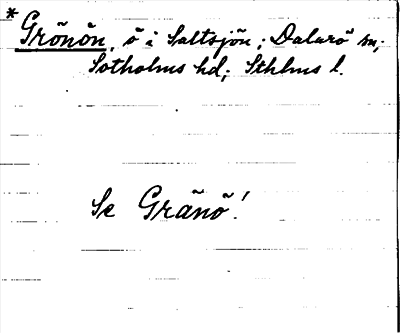 *Grönön, ö i Saltsjön; Dalarö sn;
Sotholms hd; Sthlms l.
Se Granö!